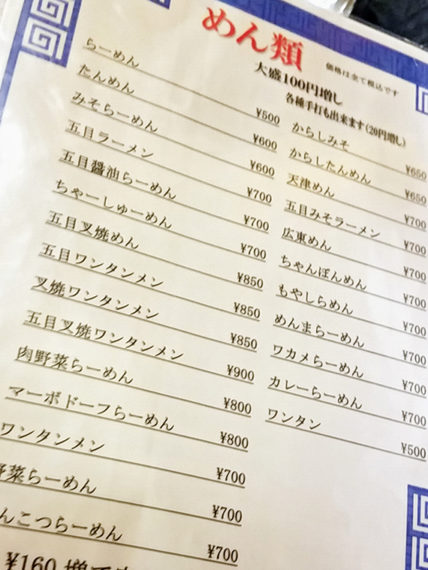 めん類
価格は全て税込です
大盛100円増し
各種手打も出来ます(20円増し)
らーめん ¥500
たんめん ¥600
みそらーめん ¥600
五目ラーメン ¥700
五目醤油らーめん ¥700
ちゃーしゅーめん ¥700
五目叉焼めん ¥850
五目ワンタンメン ¥850
叉焼ワンタンメン ¥850
五目叉焼ワンタンメン ¥900
肉野菜らーめん ¥800
マーボドーフらーめん ¥800
ワンタンメン ¥700
野菜らーめん ¥700
んこつらーめん ¥700
¥160 増
からしみそ ¥650
からしたんめん ¥650
天津めん ¥700
五目みそラーメン ¥700
広東めん ¥700
ちゃんぽんめん ¥700
もやしらめん ¥700
めんまらーめん ¥700
ワカメらーめん ¥700
カレーらーめん ¥700
ワンタン ¥500